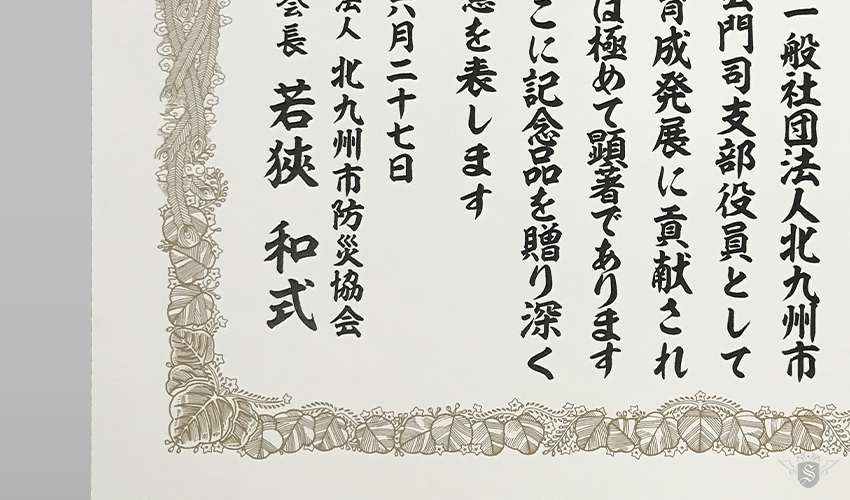 一般社団法人北九州市
門司支部役員として
育成発展に貢献され
は極めて顕著であります
こに記念品を贈り深く
を表します
六月二十七日
法人 北九州市防災協会
会長 若狹 和式
S